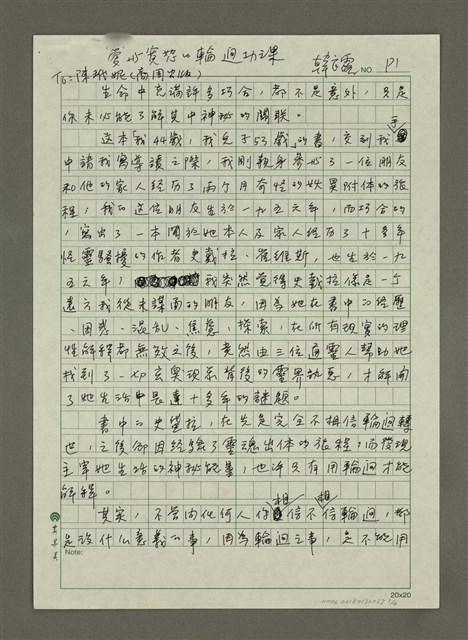 愛與寬恕的輪迴功課
韓良露 NO. P1
To:陳珮妮(高周出版)
生命中充滿許多巧合,都不是意外,只是
你未必能了解其中神秘的關联。
這本「我44歲,我兒子53歲」的書,交到我手
中請我寫導讀之際,我剛親身參與了一位朋友
和他的家人经历了兩个月奇怪的妖異附体的旅
程,我的這位朋友生於一九五六年,而巧合的
,寫出了一本関於她本人及家人经历了十多年
怪靈騷擾的作者史戴拉、崔維斯,也生於一九
五六年,我突然覚得史戴拉像是一个
遠方我從未謀面的朋友,因為她在書中的經歷
、困惑、混乱、焦慮、探索,在所有現實的理
性解釋都無效之後,竟然由三位通靈人幫助她
找到了一切玄奥現象背後的靈界執意,才解開
了她生活中長達十多年的謎題。
書中的史塔拉,在先是完全不相信輪迴轉
世,之後卻因经驗了靈魂出体的旅程,而發現
主宰她生活的神秘能量,也許只有用輪迴才能
解釋。
其家,不管向任何人你相信不相信輪迴,都
是沒什么意義的事,因為輪迴之事,是不能用
Note:
20x20